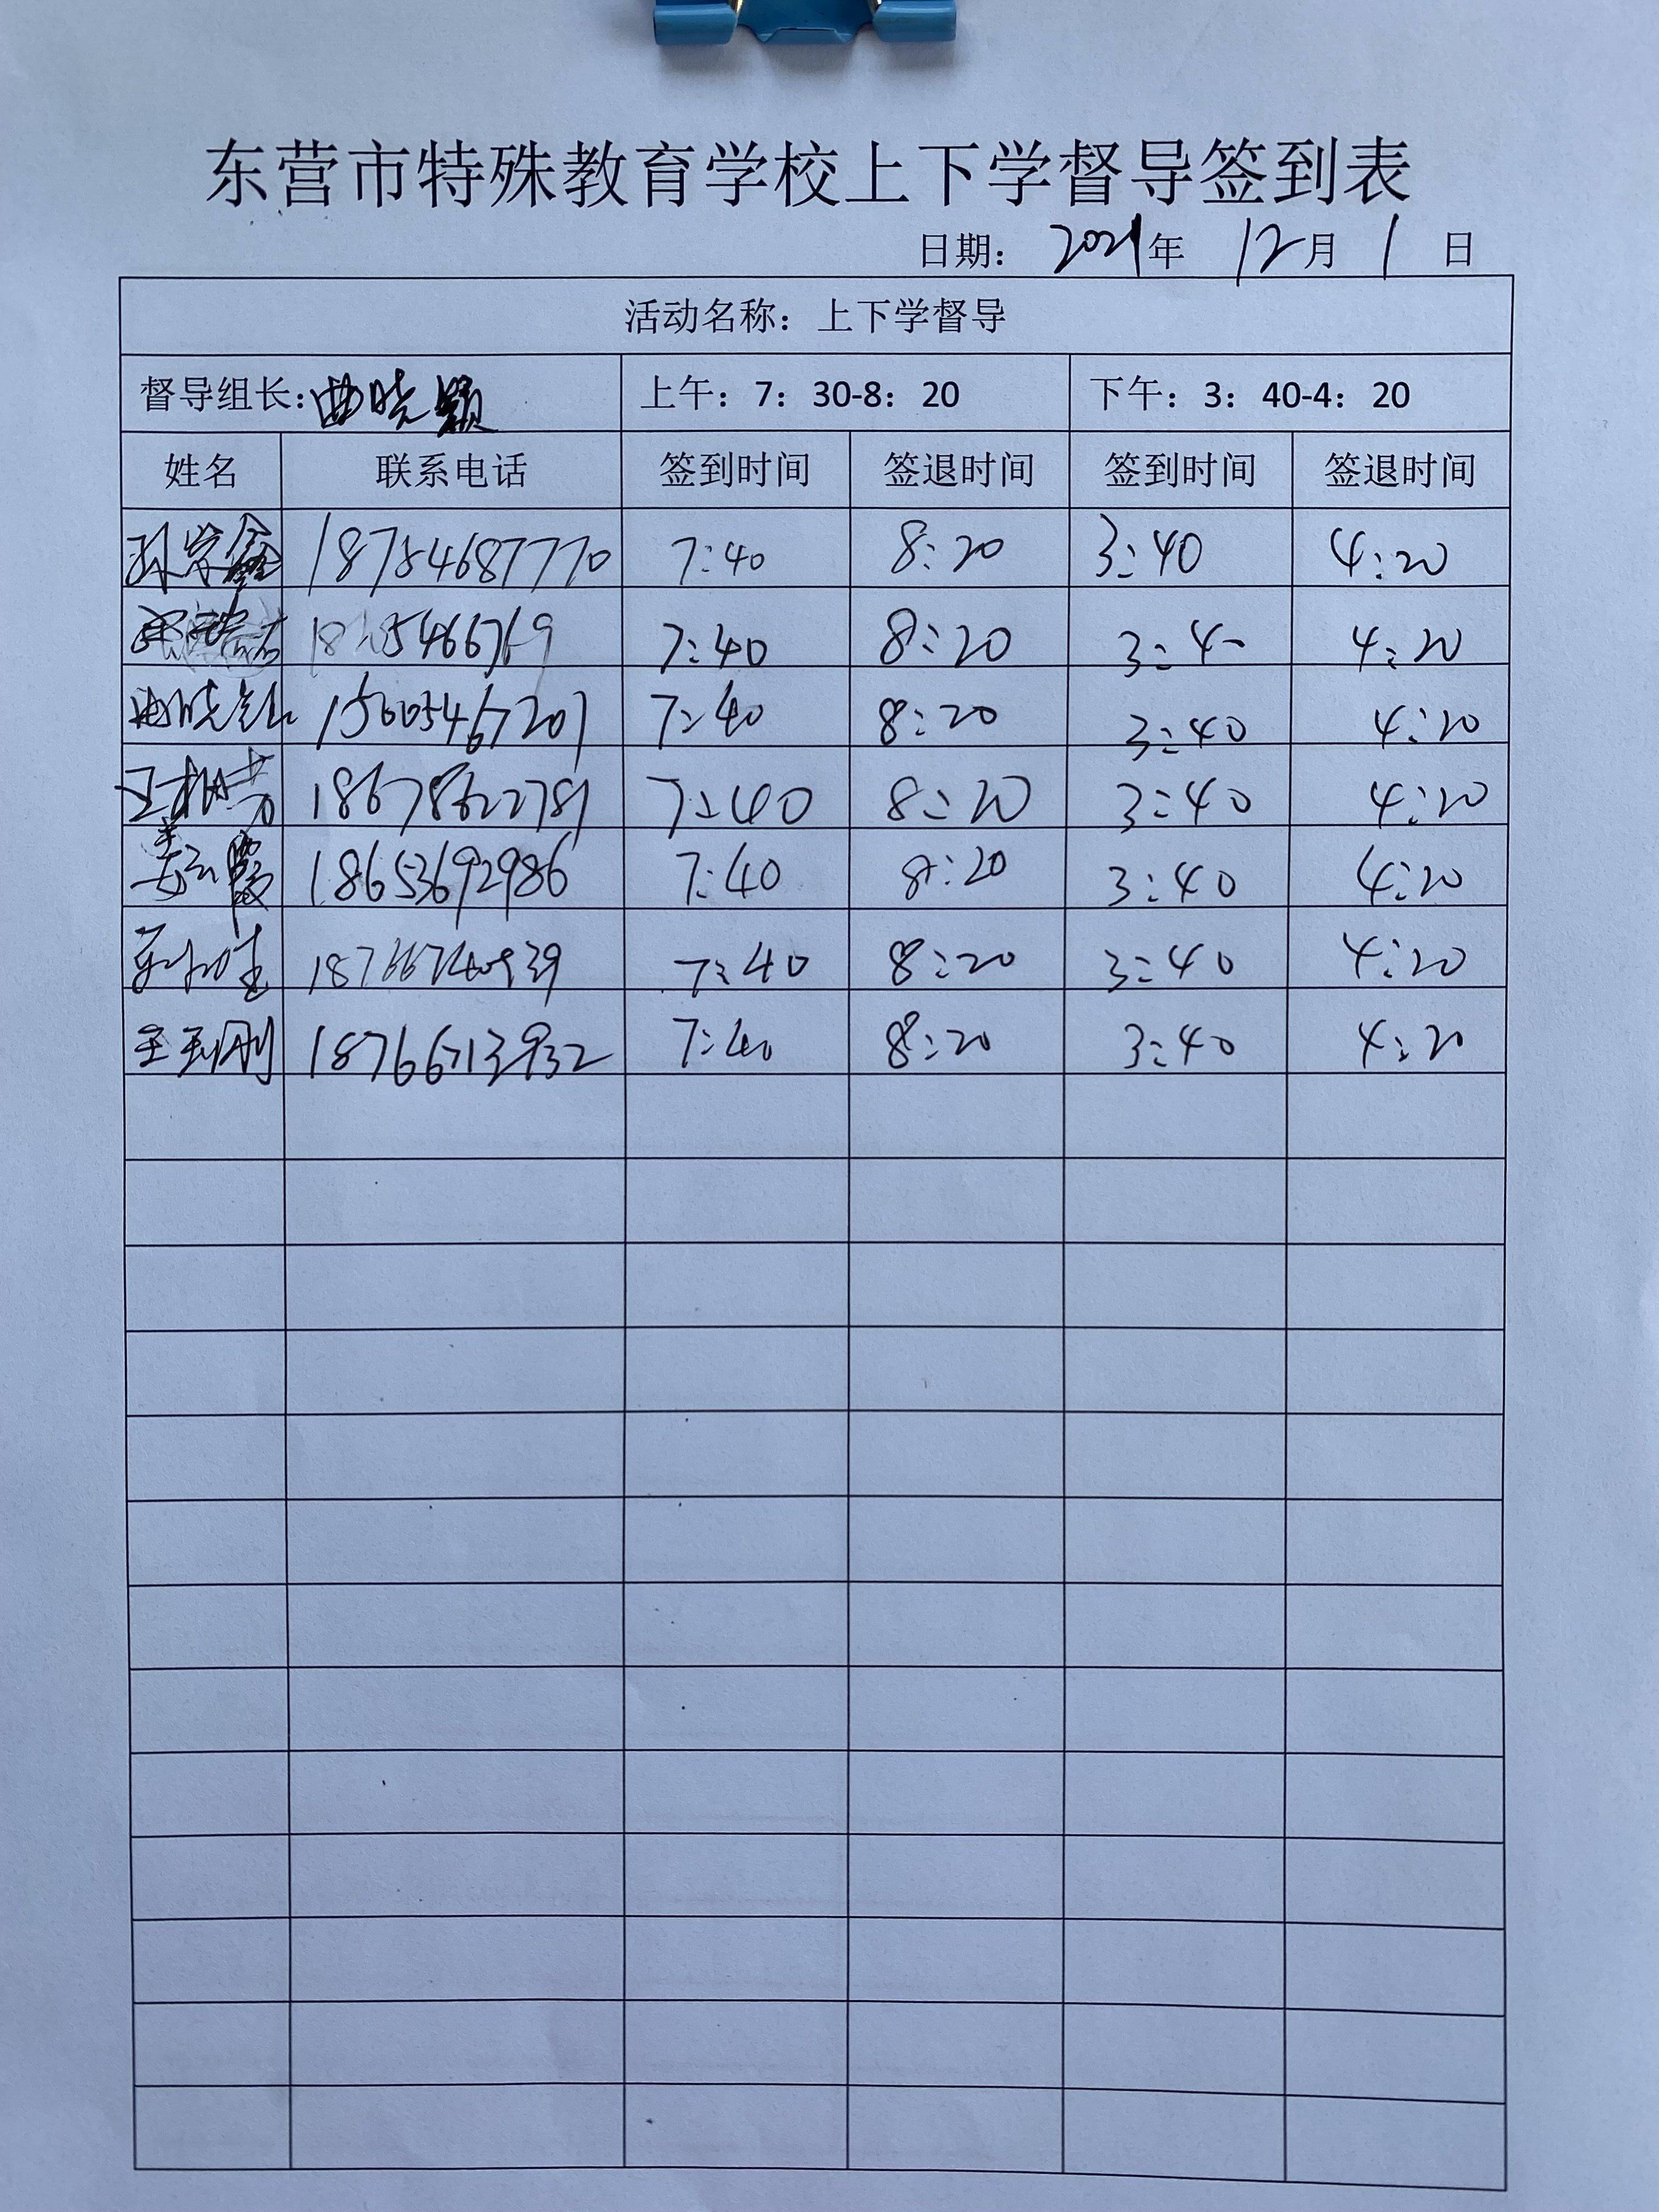 东营市特殊教育学校上下学督导签到表
日期：2021年 12月 1 日
活动名称：上下学督导
督导组长：曲晓颖 上午：7：30-8：20 下午：3：40-4：20
姓名 联系电话 签到时间 签退时间 签到时间 签退时间
18754687770 7:40 8:20 3:40 4:20
7:40 8:20 3:4 4:20
15605467207 7:40 8:20 3:40 4:20
18678622781 7:40 8:20 3:40 4:20
18653692986 7:40 8:20 3:40 4:20
7:40 8:20 3:40 4:20
18766713932 7:40 8:20 3:40 4:20